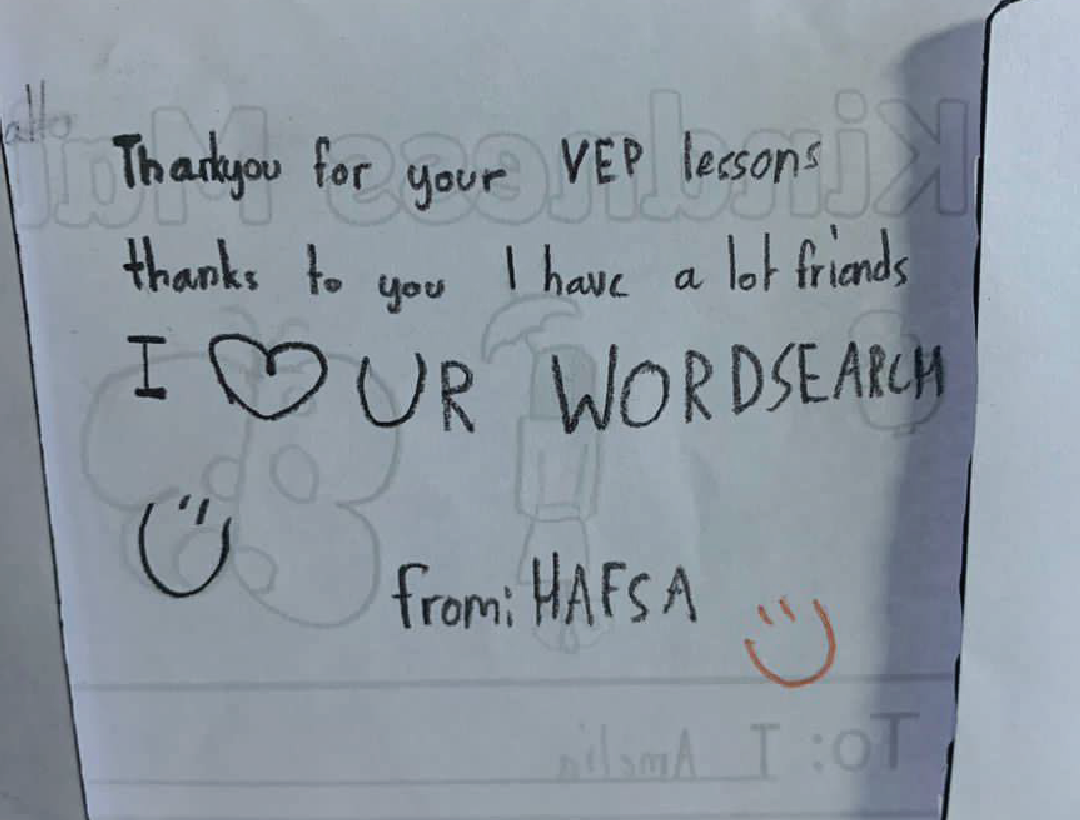 Thankyou for your VEP lessons
thanks to you I have a lot friends
I ♡ UR WORDSEARCH
from: HAFSA
To: I Amelia